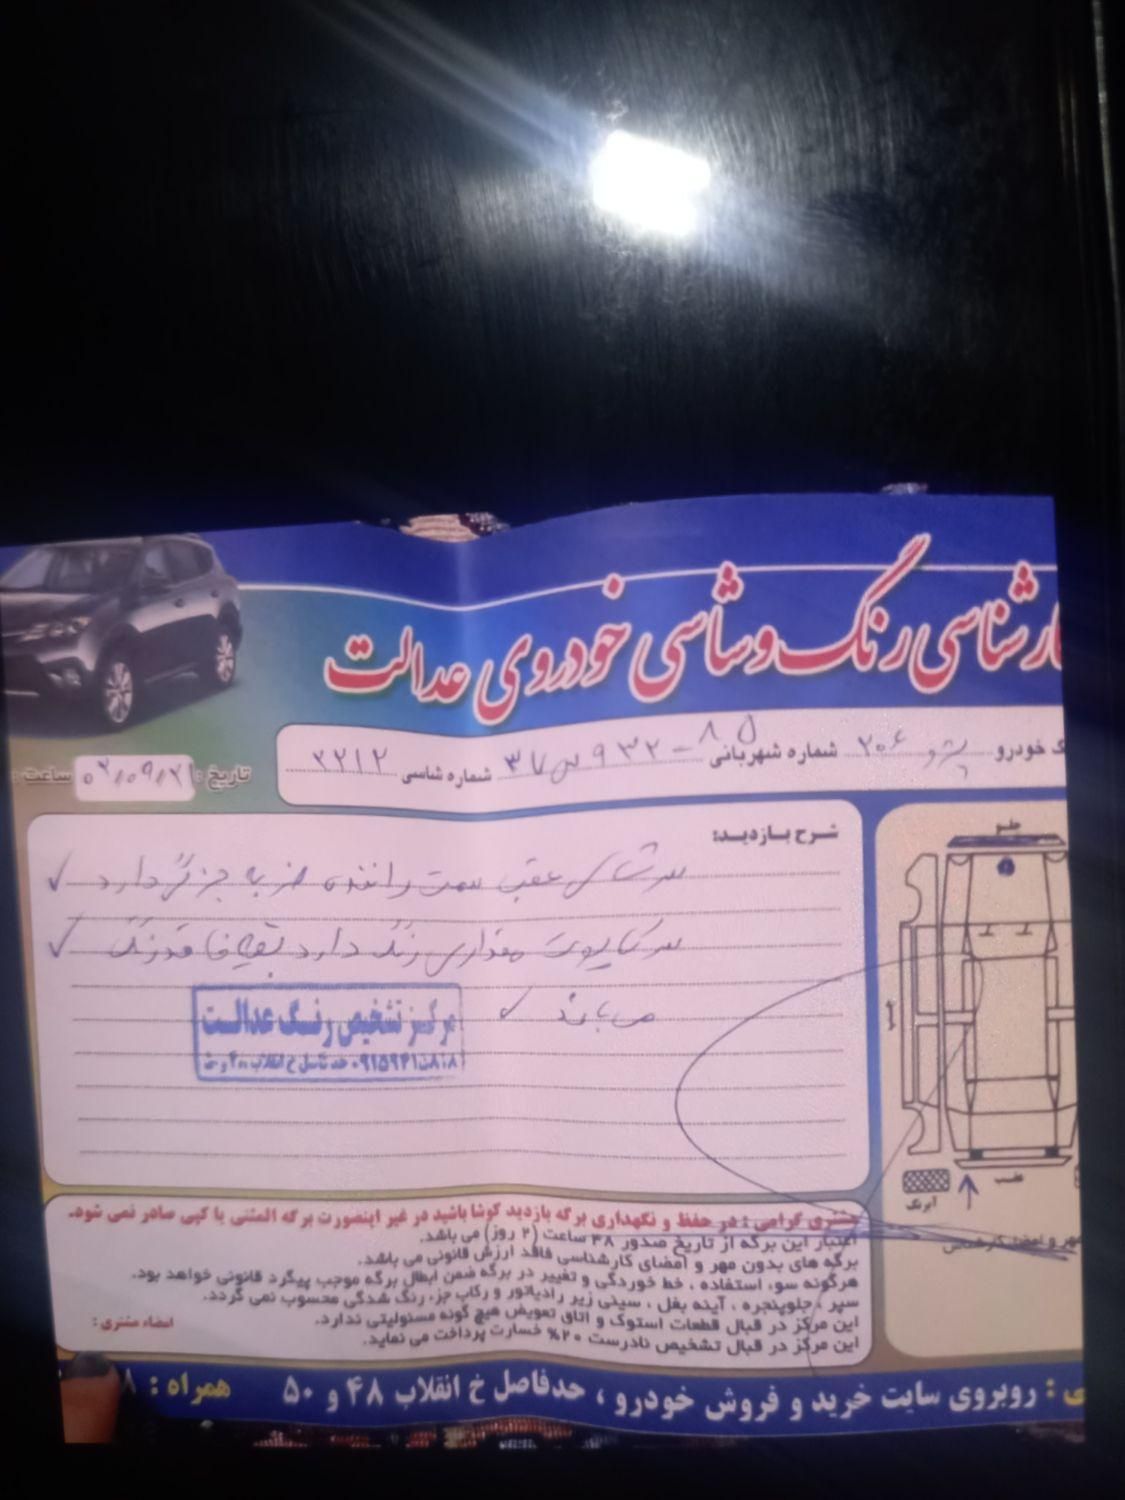 کارشناسی رنگ و شاسی خودروی عدالت
خودرو پژو ۲۰۶ شماره شهربانی ۸۵ - ۹۳۲ س ۳۷ شماره شاسی ۲۲۱۲ تاریخ: ۰۲/۰۹/۲۱ ساعت:
شرح بازدید:
سرشاسی عقب سمت راننده ضربه جزئی دارد ✓
سر کاپوت مقداری رنگ دارد بقیه فاقد رنگ ✓
می باشد ✓
مرکز تشخیص رنگ عدالت
جلو
عقب
آبرنگ
مهر و امضاء کارشناس
مشتری گرامی: در حفظ و نگهداری برگه بازدید کوشا باشید در غیر اینصورت برگه المثنی یا کپی صادر نمی شود.
اعتبار این برگه از تاریخ صدور ۴۸ ساعت (۲ روز) می باشد.
برگه های بدون مهر و امضای کارشناسی فاقد ارزش قانونی می باشد.
هرگونه سوء استفاده، خط خوردگی و تغییر در برگه ضمن ابطال برگه موجب پیگرد قانونی خواهد بود.
سپر، جلوپنجره، آینه بغل، سینی زیر رادیاتور و رکاب جزء رنگ شدگی محسوب نمی گردد.
این مرکز در قبال قطعات استوک و اتاق تعویض هیچ گونه مسئولیتی ندارد.
این مرکز در قبال تشخیص نادرست ۲۰% خسارت پرداخت می نماید.
امضاء مشتری:
روبروی سایت خرید و فروش خودرو، حدفاصل خ انقلاب ۴۸ و ۵۰ همراه: